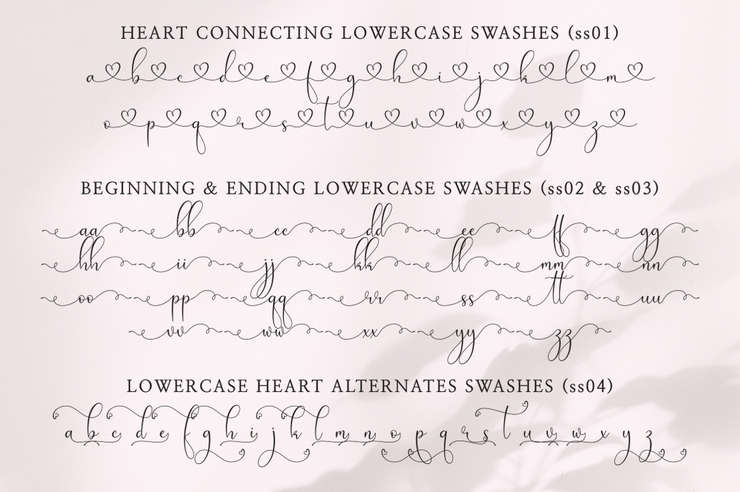 HEART CONNECTING LOWERCASE SWASHES (ss01)
a b c d e f g h i j k l m
o p q r s t u v w x y z
BEGINNING & ENDING LOWERCASE SWASHES (ss02 & ss03)
aa bb cc dd ee ff gg
hh ii jj kk ll mm nn
oo pp qq rr ss tt uu
vv ww xx yy zz
LOWERCASE HEART ALTERNATES SWASHES (ss04)
a b c d e f g h i j k l m n o p q r s t u v w x y z